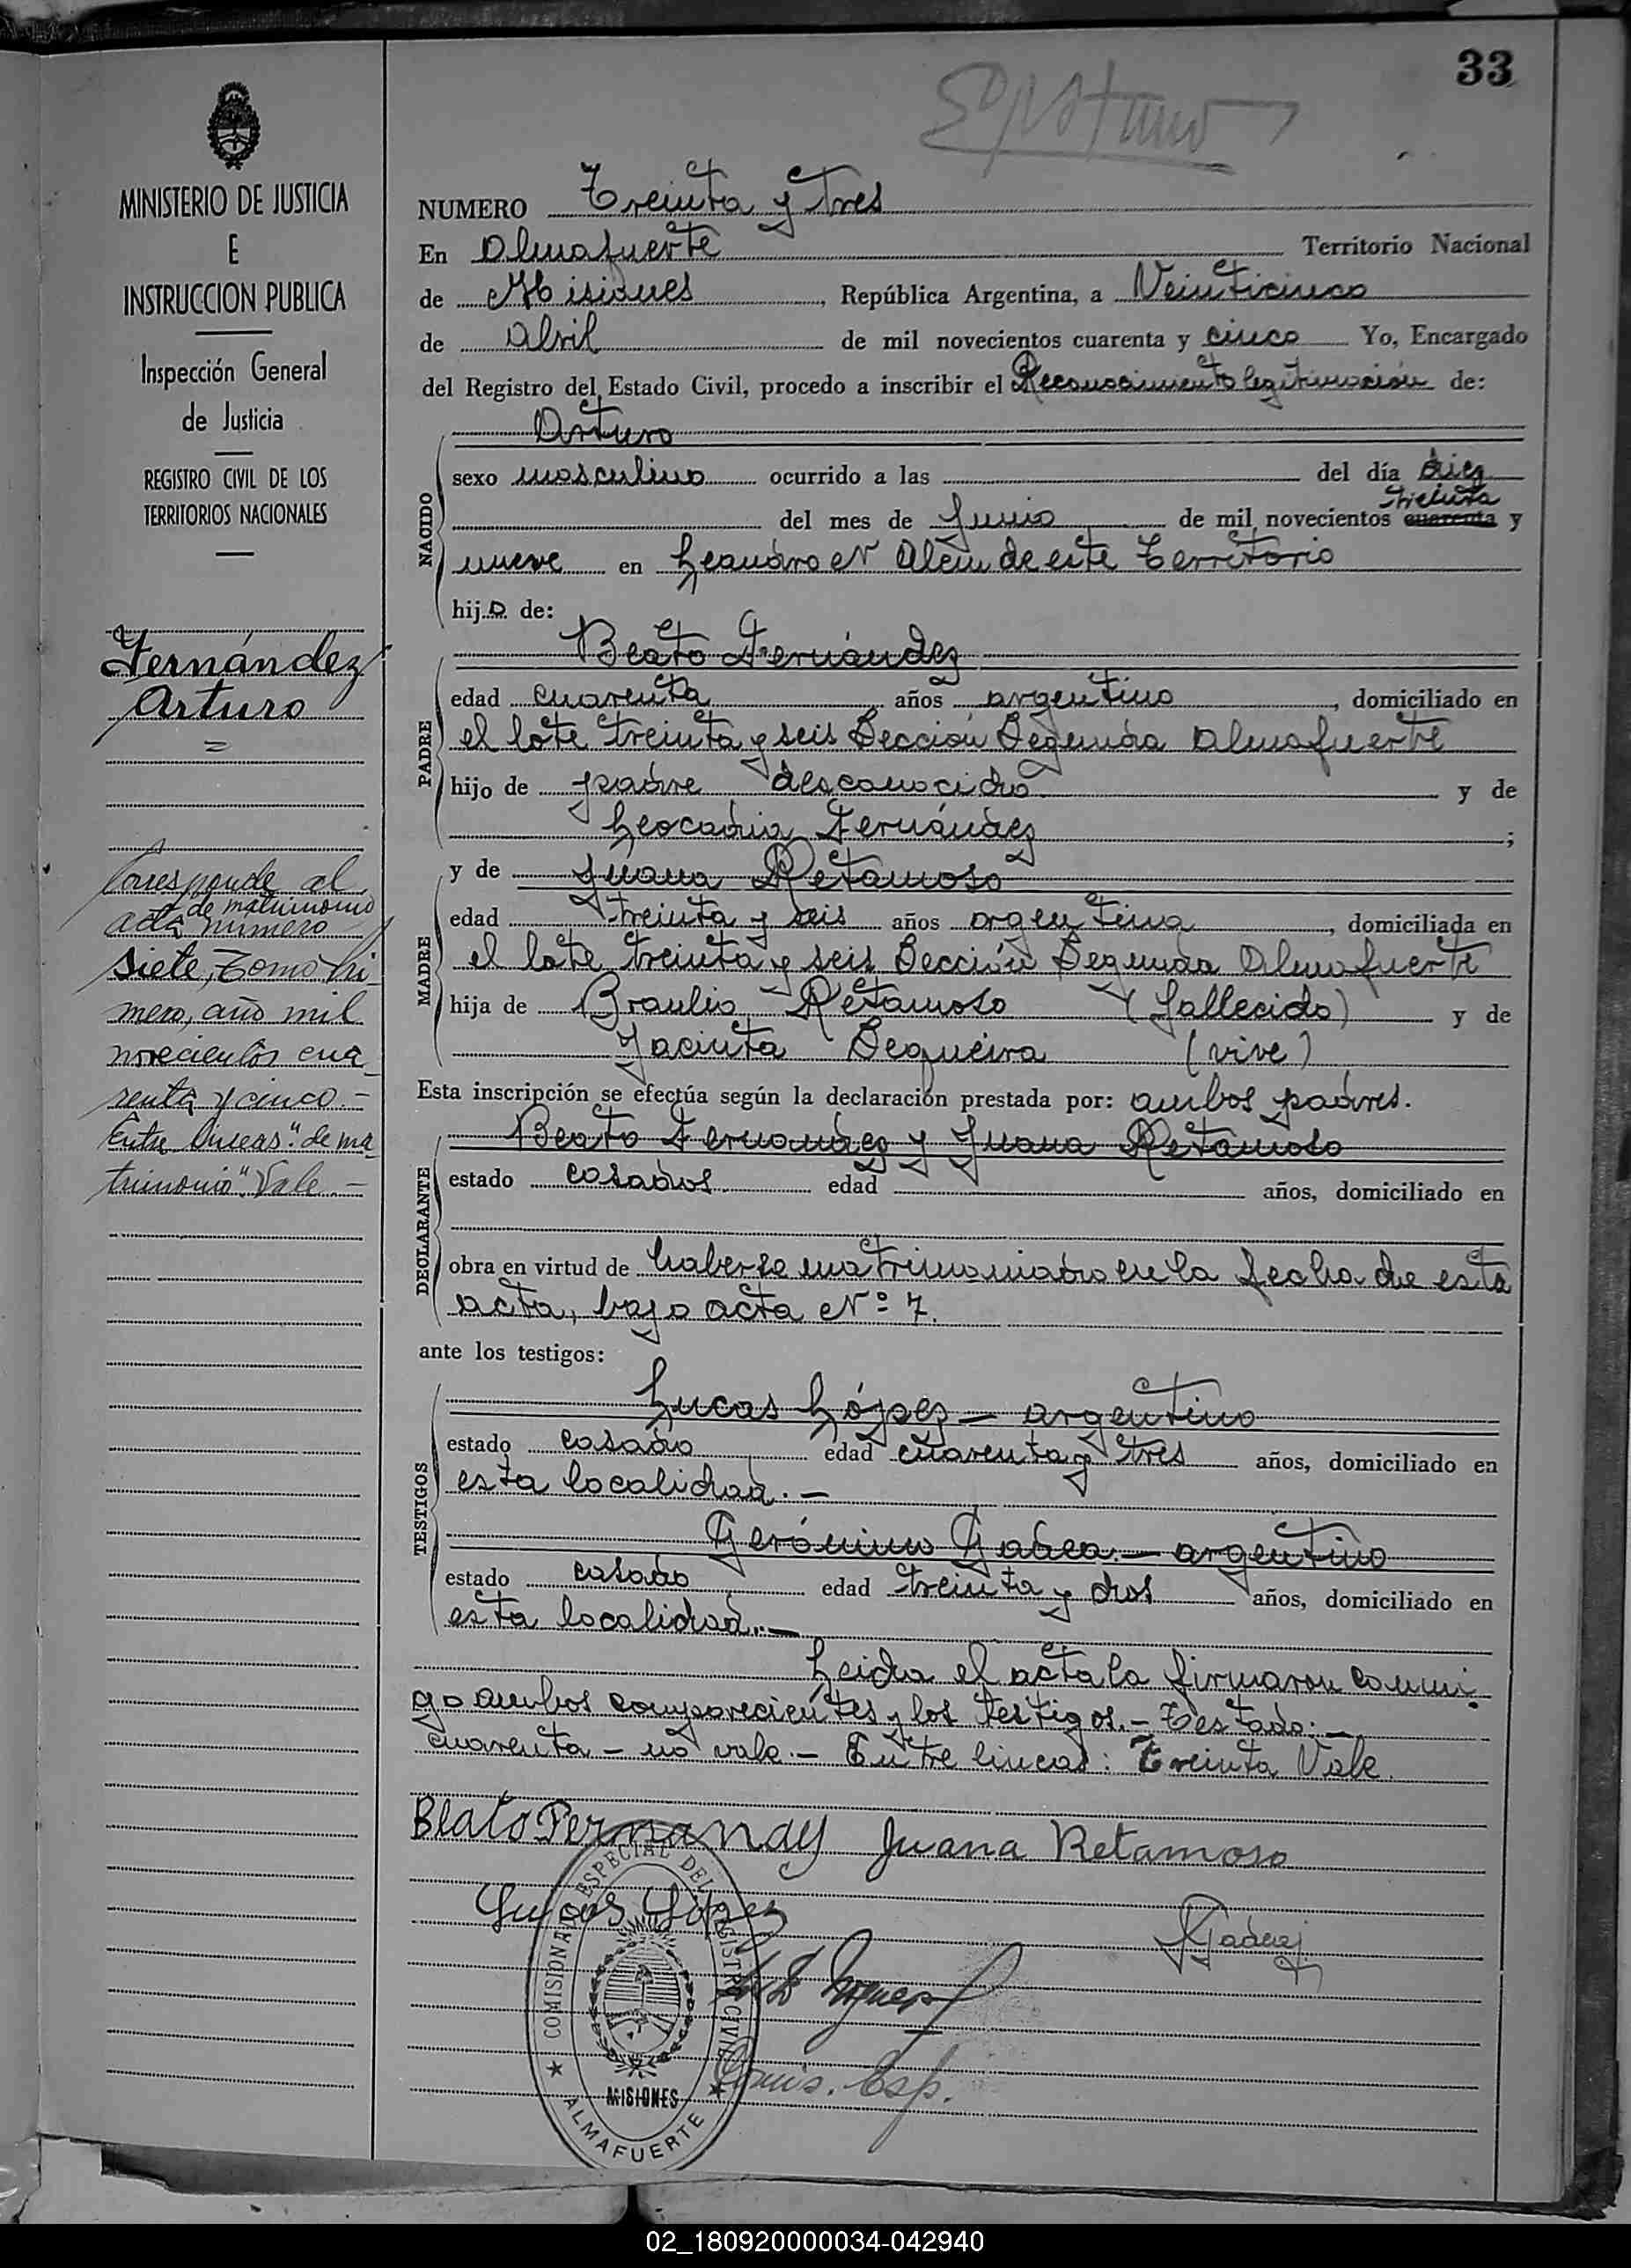 33
MINISTERIO DE JUSTICIA
E
INSTRUCCION PUBLICA
Inspección General
de Justicia
REGISTRO CIVIL DE LOS
TERRITORIOS NACIONALES
Fernández
Arturo
Corresponde al
de matrimonio
acta número
siete, Tomo Pri
mero, año mil
novecientos cua
renta y cinco.-
Entre líneas: "de ma
trimonio". Vale.-
NUMERO Treinta y tres
En Almafuerte Territorio Nacional
de Misiones, República Argentina, a Veinticinco
de Abril de mil novecientos cuarenta y cinco Yo, Encargado
del Registro del Estado Civil, procedo a inscribir el Reconocimiento legitimación de:
Arturo
NACIDO
sexo masculino ocurrido a las del día diez
treinta
del mes de Junio de mil novecientos cuarenta y
nueve en Leandro N Alem de este Territorio
hijo de:
Beato Fernández
PADRE
edad cuarenta años argentino, domiciliado en
el lote treinta y seis Sección Segunda Almafuerte
hijo de padre desconocido y de
Leocadia Fernández;
y de Juana Retamoso
MADRE
edad treinta y seis años argentina, domiciliada en
el lote treinta y seis Sección Segunda Almafuerte
hija de Braulio Retamoso (fallecido) y de
Jacinta Sequeira (vive)
Esta inscripción se efectúa según la declaración prestada por: ambos padres.
Beato Fernández y Juana Retamoso
DECLARANTE
estado casados. edad años, domiciliado en
obra en virtud de haberse matrimoniado en la fecha de esta
acta, bajo acta Nº 7.
ante los testigos:
Lucas López — argentino
TESTIGOS
estado casado edad cuarenta y tres años, domiciliado en
esta localidad.—
Gerónimo Gadea.— argentino
estado casado edad treinta y dos años, domiciliado en
esta localidad.—
Leida el acta la firmaron conmi-
go ambos comparecientes y los testigos.- Testado:-
cuarenta - no vale.- Entre lineas: Treinta Vale.
Beato Fernandez Juana Retamoso
Lucas López
Comis. Esp.
COMISIONADO ESPECIAL DEL REGISTRO CIVIL
MISIONES
ALMAFUERTE
02_180920000034-042940